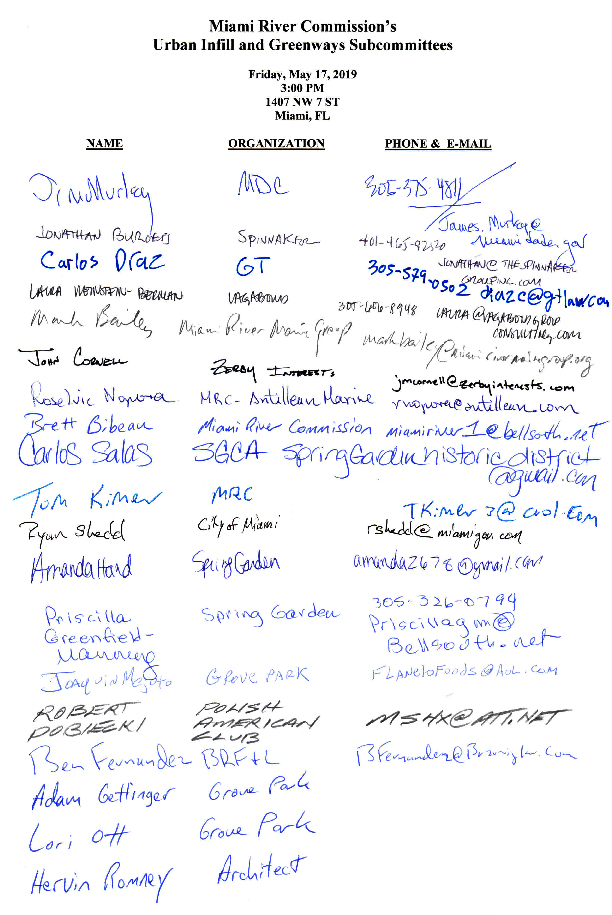 Miami River Commission's
Urban Infill and Greenways Subcommittees
Friday, May 17, 2019
3:00 PM
1407 NW 7 ST
Miami, FL
NAME ORGANIZATION PHONE & E-MAIL
Jim Murley MDC 305-375-4811
James.Murley@
miamidade.gov
JONATHAN BURGESS SPINNAKER 401-465-
JONATHAN@THESPINNAKER
GROUPINC.COM
Carlos Diaz GT 305-579-0502 diazc@gtlaw.com
LAURA WEINSTEIN-BERMAN VAGABOND 305-606-8948 LAURA@VAGABONDGROUP
CONSULTING.COM
Mark Bailey Miami River Marine Group markbailey@miamirivermarinegroup.org
JOHN CORNELL ZERBY INTERESTS jmcornell@zerbyinterests.com
Roselvic Noguera MRC-Antillean Marine rnoguera@antillean.com
Brett Bibeau Miami River Commission miamiriver1@bellsoth.net
Carlos Salas SGCA SpringGardenhistoricdistrict
@gmail.com
Tom Kimen MRC TKimen3@aol.com
Ryan Shedd City of Miami rshedd@miamigov.com
Amanda Hand Spring Garden amanda2678@gmail.com
305-326-0794
Priscilla Spring Garden Priscillagm@
Greenfield- Bellsouth.net
Manning
JOAQUIN Mejoto GROVE PARK FLANeloFoods@AOL.COM
ROBERT POLISH
DOBIECKI AMERICAN MSHX@ATT.NET
CLUB
Ben Fernandez BRF+L BFernandez@
Adam Gettinger Grove Park
Lori Ott Grove Park
Hervin Romney Architect